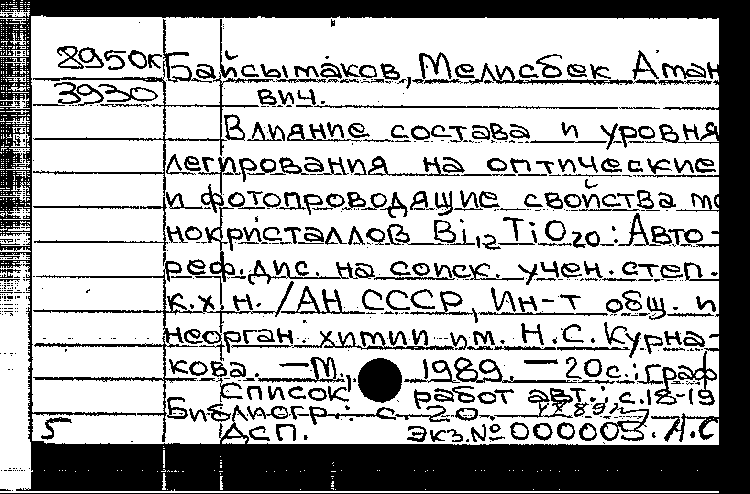 8950к Байсымаков, Мелисбек Аман
3930 вич.
Влияние состава и уровня
легирования на оптические
и фотопроводящие свойства мо
нокристаллов Bi12TiO20: Авто-
реф.дис. на соиск. учен.степ.
к.х.н. /АН СССР, Ин-т общ. и
неорган. химии им. Н.С. Курна-
кова. —М., 1989. — 20с.: граф
Список работ авт.: с.18-19
Библиогр.: с. 20.
5 ДСП. Экз.№000003. А.С